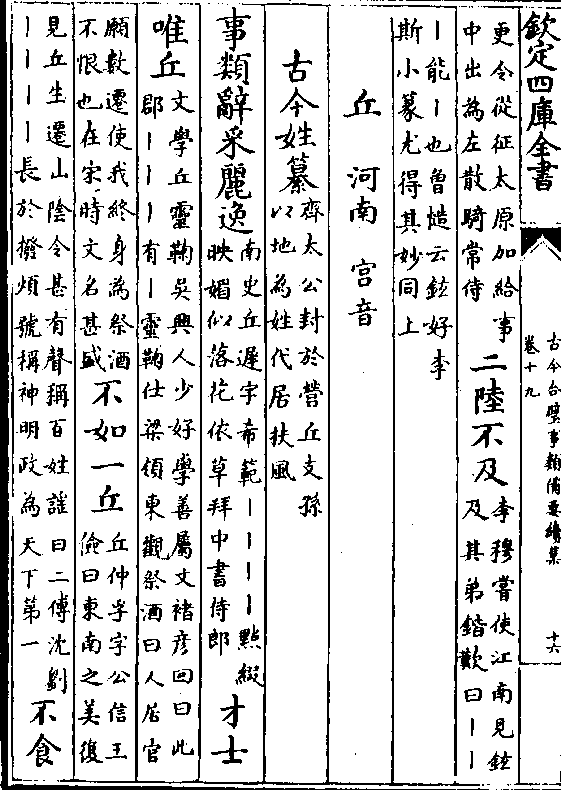 欽定四庫全書
古今合璧事類備要續集
卷十九
十六
更令從征太原加給事
中出為左散騎常侍
二陸不及
李穆嘗使江南見鉉
及其弟鍇歎曰丨丨
丨能丨也曾慥云鉉好李
斯小篆尤得其妙同上
丘 河南 宮音
古今姓纂
齊太公封於營丘支孫
以地為姓代居扶風
事類辭采麗逸
南史丘遲字希範丨丨丨丨點綴
映媚似落花依草拜中書侍郎
才士
唯丘
文學丘靈鞠吳興人少好學善屬文褚彦回曰此
郡丨丨丨有丨靈鞠仕梁領東觀祭酒曰人居官
願數遷使我終身為祭酒
不恨也在宋時文名甚盛
不如一丘
丘仲孚字公信王
儉曰東南之美復
見丘生遷山陰令甚有聲稱百姓謡曰二傅沈劉
丨丨丨丨長於撥煩號稱神明政為天下第一
不食